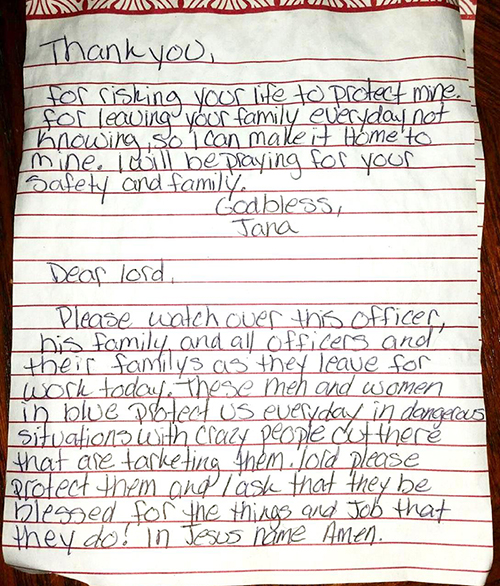 Thank you,
for risking your life to protect mine.
for leaving your family everyday not
knowing, so I can make it Home to
mine. I will be praying for your
Safety and family.
God bless,
Jana
Dear lord,
Please watch over this officer,
his family, and all officers and
their familys as they leave for
work today. These men and women
in blue protect us everyday in dangerous
situations with crazy people out there
that are tarketing them. lord please
protect them and I ask that they be
blessed for the things and Job that
they do! In Jesus name Amen.